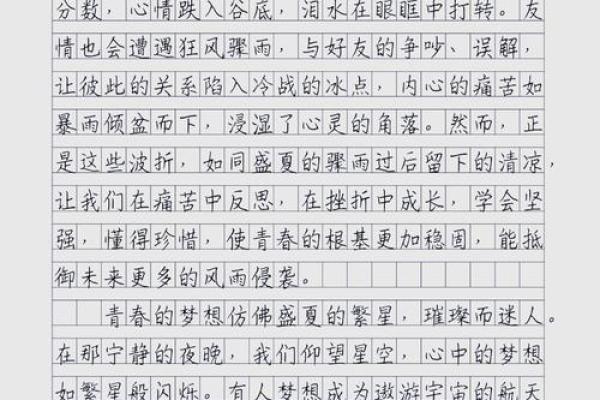 分数，心情跌入谷底，泪水在眼眶中打转。友
情也会遭遇狂风骤雨，与好友的争吵、误解，
让彼此的关系陷入冷战的冰点，内心的痛苦如
暴雨倾盆而下，浸湿了心灵的角落。然而，正
是这些波折，如同盛夏的骤雨过后留下的清凉，
让我们在痛苦中反思，在挫折中成长，学会坚
强，懂得珍惜，使青春的根基更加稳固，能抵
御未来更多的风雨侵袭。
青春的梦想仿佛盛夏的繁星，璀璨而迷人。
在那宁静的夜晚，我们仰望星空，心中的梦想
如繁星般闪烁。有人梦想成为遨游宇宙的航天